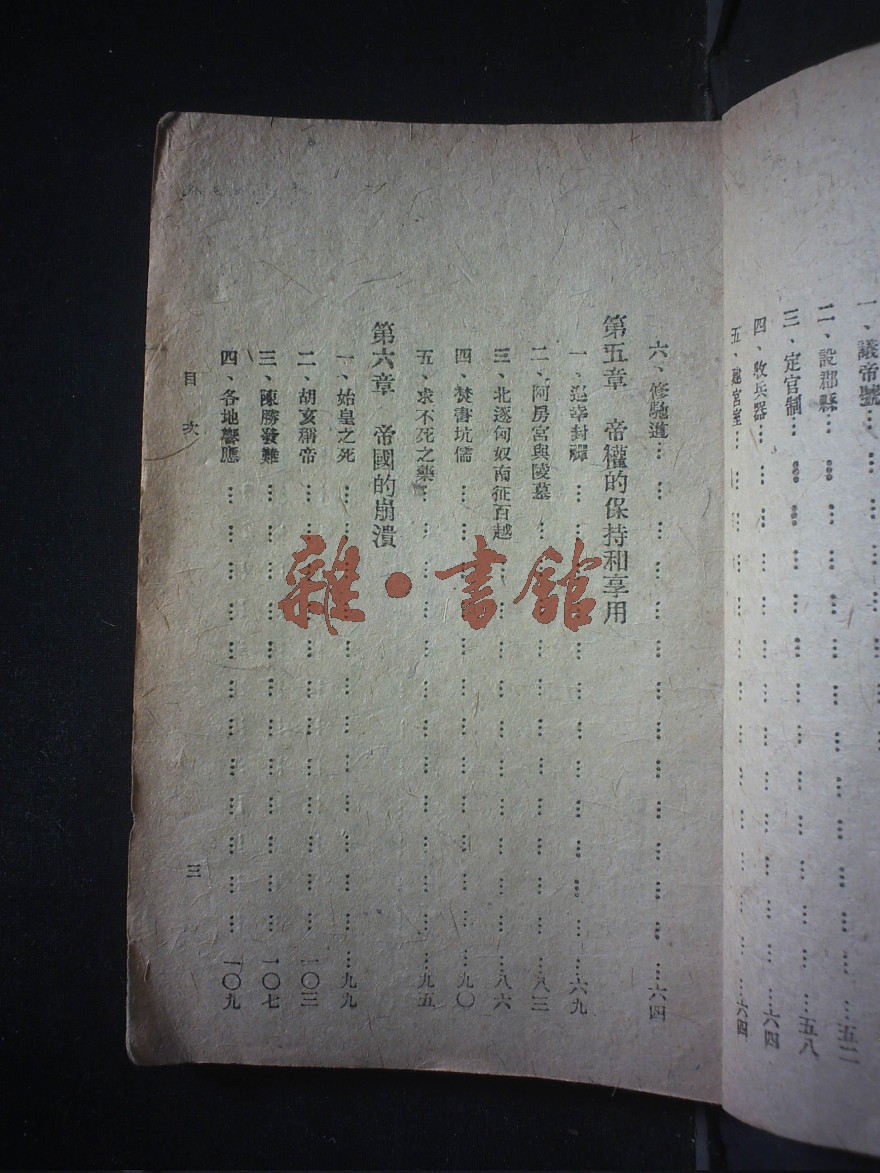 一、議帝號……
二、設郡縣……五二
三、定官制……五八
四、收兵器……六四
五、建宮室……六四
六、修馳道……六四
第五章　帝權的保持和享用
一、巡幸封禪……六九
二、阿房宮與陵墓……八三
三、北逐匈奴南征百越……八六
四、焚書坑儒……九〇
五、求不死之藥……九五
第六章　帝國的崩潰
一、始皇之死……九九
二、胡亥稱帝……一〇三
三、陳勝發難……一〇七
四、各地響應……一〇九
目次
三
雜·書館